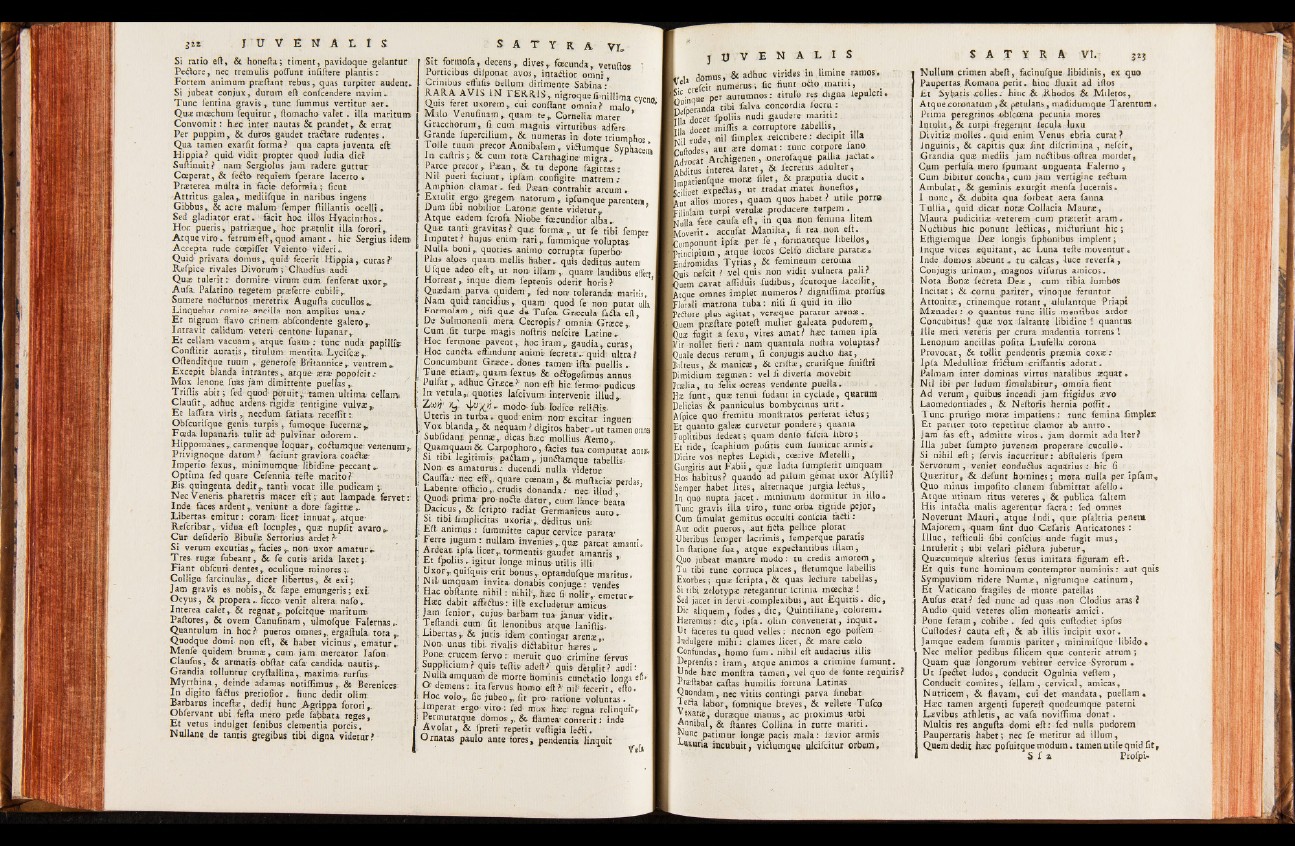 322 JUVENALIS
Si ratio eſt, & honeſta; timent, pavidoque gelantur
Pectore, nec tremulis poſſunt inſiſtere plantis:
Fortem animum præſtant rebus, quas turpiter audent.
Si jubeat conjux, durum eſt conſcendere navim.
Tunc ſentina gravis, tunc ſummus vertitur aer.
Quæ mœchum ſequitur, ſtomacho valet. illa maritum
Convomit: hæc inter nautas & prandet, & errat
Per puppim, & duros gaudet tractare rudentes.
Qua tamen exarſit forma? qua capta juventa eſt
Hippia? quid vidit propter quod ludia dici
Suſtinuit? nam Sergiolus jam radere guttur
Cœperat, & ſecto requiem ſperare lacerto.
Præterea multa in facie deformia; ſicut
Attritus galea, mediiſque in naribus ingens
Gibbus, & acre malum ſemper ſtillantis ocelli.
Sed gladiator erat. facit hoc illos Hyacinthos.
Hoc pueris, patriæque, hoc prætulit illa ſorori,
Atque viro. ferrum eſt, quod amant. hic Sergius idem
Accepta rude cœpiſſet Veiento videri.
Quid privata domus, quid fecerit Hippia, curas?
Reſpice rivales Divorum; Claudius audi
Quæ tulerit: dormire virum cum ſenſerat uxor,
Auſa Palatino tegetem præferre cubili,
Sumere nocturnos meretrix Auguſta cucullos,
Linquebat comite ancilla non amplius una:
Et nigrum flavo crinem abſcondente galero,
Intravit calidum veteri centone lupanar,
Et cellam vacuam, atque ſuam: tunc nuda papillis
Conſtitit auratis, titulum mentita Lyciſcæ,
Oſtenditque tuum, generoſe Britannice, ventrem.
Excepit blanda intrantes, atque æra popoſcit:
Mox lenone ſuas jam dimittente puellas,
Triſtis abit; ſed quod potuit, tamen ultima cellam
Clauſit, adhuc ardens rigidæ tentigine vulvæ,
Et laſſata viris, necdum ſatiata receſſit:
Obſcuriſque genis turpis, fumoque lucernæ,
Fœda lupanaris tulit ad pulvinar odorem.
Hippomanes, carmenque loquar, coctumque venenum,
Privignoque datum? faciunt graviora coactæ
Imperio ſexus, minimumque libidine peccant.
Optima ſed quare Ceſennia teſte marito?
Bis quingenta dedit, tanti vocat ille pudicam;
Nec Veneris pharetris macer eſt; aut lampade fervet:
Inde faces ardent, veniunt a dote ſagittæ,
Libertas emitur: coram licet innuat, atque
Reſcribat, vidua eſt locuples, quæ nupſit avaro.
Cur deſiderio Bibulæ Sertorius ardet?
Si verum excutias, facies, non uxor amatur.
Tres rugæ ſubeant, & ſe cutis arida laxet;
Fiant obſcuri dentes, oculique minores;
Collige ſarcinulas, dicet libertus, & exi;
Jam gravis es nobis, & ſæpe emungeris; exi
Ocyus, & propera. ſicco venit altera naſo.
Interea calet, & regnat, poſcitque maritum
Paſtores, & ovem Canuſinam, ulmoſque Falernas.
Quantulum in hoc? pueros omnes, ergaſtula tota,
Quodque domi non eſt, & haber vicinus, ematur.
Menſe quidem brumæ, cum jam mercator Iaſon
Clauſus, & armatis obſtat caſa candida nautis,
Grandia tolluntur cryſtallina, maxima rurſus
Myrrhina, deinde adamas notiſſimus, & Berenices
In digito factus pretioſior. hunc dedit olim
Barbarus inceſtæ, dedit hunc Agrippa ſorori,
Obſervant ubi feſta mero pede ſabbata reges,
Et vetus indulget ſenibus clementia porcis.
Nullane de tantis gregibus tibi digna videtur?
SATYRA VI.
Sit formoſa, decens, dives, fœcunda, vetuſtos
Porticibus diſponat avos, intactior omni
Crinibus effuſis bellum dirimente Sabina:
RARA AVIS IN TERRIS, nigroque ſimillima cycno,
Quis feret uxorem, cui conſtant omnia? malo,
Malo Venuſinam, quam te, Cornelia mater
Gracchorum, ſi cum magnis virtutibus adfers
Grande ſupercilium, & numeras in dote triumphos.
Tolle tuum precor Annibalem, victumque Syphacem
In caſtris; & cum tota Carthagine migra.
Parce precor, Pæan, & tu depone ſagittas:
Nil pueri faciunt, ipſam configite matrem:
Amphion clamat. ſed Pæan contrahit arcum.
Extulit ergo gregem natorum, ipſumque parentem,
Dum ſibi nobilior Latonæ gente videtur,
Atque eadem ſcrofa Niobe fœcundior alba.
Quæ tanti gravitas? quæ forma, ut ſe tibi ſemper
Imputet? hujus enim rari, ſummique voluptas
Nulla boni, quoties animo corrupta ſuperbo
Plus aloes quam mellis habet. quis deditus autem
Uſque adeo eſt, ut non illam, quam laudibus effert,
Horreat, inque diem ſeptenis oderit horis?
Quædam parva quidem, ſed non toleranda maritis.
Nam quid rancidius, quam quod ſe non putat ulla
Formoſam, niſi quæ de Tuſca Græcula facta eſt,
De Sulmonenſi mera Cecropis? omnia Græce,
Cum ſit turpe magis noſtris neſcire Latine.
Hoc ſermone pavent, hoc iram, gaudia, curas,
Hoc cuncta effundunt animi ſecreta. quid ultra?
Concumbunt Græce. dones tamen iſta puellis.
Tune etiam, quam ſextus & octogeſimus annus
Pulſat, adhuc Græce? non eſt hic ſermo pudicus
In vetula, quoties laſcivum intervenit illud,
Ζωὴ καὶ ψυχή. modo ſub lodice relictis
Uteris in turba. quod enim non excitat inguen
Vox blanda, & nequam? digitos habet, ut tamen omnes
Subſidant pennæ, dicas hæc mollius Aemo,
Quamquam & Carpophoro, facies tua computat annos.
Si tibi legitimis pactam, junctamque tabellis
Non es amaturus: ducendi nulla videtur
Cauſſa: nec eſt, quare cœnam, & muſtacia perdas,
Labente officio, crudis donanda: nec illud,
Quod prima pro nocte datur, cum lance beata
Dacicus, & ſcripto radiat Germanicus auro.
Si tibi ſimplicitas uxoria, deditus uni
Eſt animus: ſummitte caput cervice parata
Ferre jugum: nullam invenies, quæ parcat amanti.
Ardeat ipſa licet, tormentis gaudet amantis,
Et ſpoliis. igitur longe minus utilis illi
Uxor, quiſquis erit bonus, optanduſque maritus.
Nil umquam invita donabis conjuge: vendes
Hac obſtante nihil: nihil, hæc ſi nolit, emetur.
Hæc dabit affectus: ille excludetur amicus
Jam ſenior, cujus barbam tua janua vidit.
Teſtandi cum ſit lenonibus atque laniſtis
Libertas, & juris idem contingat arenæ,
Non unus tibi rivalis dictabitur hæres.
Pone crucem ſervo: meruit quo crimine ſervus
Supplicium? quis teſtis adeſt? quis detulit? audi:
Nulla umquam de morte hominis cunctatio longa eſt.
O demens: ita ſervus homo eſt? nil fecerit, eſto.
Hoc volo, ſic jubeo, ſit pro ratione voluntas.
Imperat ergo viro: ſed mox hæc regna relinquit,
Permutatque domos, & flamea conterit: inde
Avolat, & ſpreti repetit veſtigia lecti.
Ornatas paulo ante fores, pendentia linquit
Vela
JUVENALIS
Vela domus, & adhuc virides in limine ramos.
Sic creſcit numerus, ſic fiunt octo mariti,
Quinque per autumnos: titulo res digna ſepulcri.
Deſperanda tibi ſalva concordia ſocru:
Illa docet ſpoliis nudi gaudere mariti:
Illa docet miſſis a corruptore tabellis,
Nil rude, nil ſimplex reſcribere: decipit illa
Cuſtodes, aut ære domat: tunc corpore ſano
Advocat Archigenen, oneroſaque pallia jactat.
Abditus interea latet, & ſecretus adulter,
Impatienſque moræ ſilet, & præputia ducit.
Scilicet expectas, ut tradat mater honeſtos,
Aut alios mores, quam quos habet? utile porro
Filiolam turpi vetulæ producere turpem.
Nulla fere cauſa eſt, in qua non femina litem
Moverit. accuſat Manilia, ſi rea non eſt.
Componunt ipſæ per ſe, formantque libellos,
Principium, atque locos Celſo dictare paratæ.
Endromidas Tyrias, & femineum ceroma
Quis neſcit? vel quis non vidit vulnera pali?
Quem cavat aſſiduis ſudibus, ſcutoque laceſſit,
Atque omnes implet numeros? digniſſima prorſus
Florali matrona tuba: niſi ſi quid in illo
Pectore plus agitat, veræque paratur arenæ.
Quem præſtare poteſt mulier galeata pudorem,
Quæ fugit a ſexu, vires amat? hæc tamen ipſa
Vir nollet fieri: nam quantula noſtra voluptas?
Quale decus rerum, ſi conjugis auctio fiat,
Balteus, & manicæ, & criſtæ, cruriſque ſiniſtri
Dimidium tegmen: vel ſi diverſa movebit
Prœlia, tu felix ocreas vendente puella.
Hæ ſunt, quæ tenui ſudant in cyclade, quarum
Delicias & panniculus bombycinus urit.
Aſpice quo fremitu monſtratos perferat ictus;
Et quanto galeæ curvetur pondere; quanta
Poplitibus ſedeat; quam denſo faſcia libro;
Et ride, ſcaphium poſitis cum ſumitur armis.
Dicite vos neptes Lepidi, cæcive Metelli,
Gurgitis aut Fabii, quæ ludia ſumpſerit umquam
Hos habitus? quando ad palum gemat uxor Aſylli?
Semper habet lites, alternaque jurgia lectus,
In quo nupta jacet. minimum dormitur in illo.
Tunc gravis illa viro, tunc orba tigride pejor,
Cum ſimulat gemitus occulti conſcia facti:
Aut odit pueros, aut ficta pellice plorat
Uberibus ſemper lacrimis, ſemperque paratis
In ſtatione ſua, atque expectantibus illam,
Quo jubeat manare modo: tu credis amorem,
Tu tibi tunc corruca places, fletumque labellis
Exorbes; quæ ſcripta, & quas lecture tabellas,
Si tibi zelotypæ retegantur ſcrinia mœchæ!
Sed jacet in ſervi complexibus, aut Equitis. dic,
Dic aliquem, ſodes, dic, Quintiliane, colorem.
Hæremus: dic, ipſa. olim convenerat, inquit,
Ut faceres tu quod velles: necnon ego poſſem
Indulgere mihi: clames licet, & mare cælo
Confundas, homo ſum. nihil eſt audacius illis
Deprenſis: iram, atque animos a crimine ſumunt.
Unde hæc monſtra tamen, vel quo de fonte requiris?
Præſtabat caſtas humilis fortuna Latinas
Quondam, nec vitiis contingi parva ſinebat
Tecta labor, ſomnique breves, & vellere Tuſco
Vexatæ, duræque manus, ac proximus urbi
Annibal, & ſtantes Collina in turre mariti.
Nunc patimur longæ pacis mala: ſævior armis
Luxuria incubuit, victumque ulciſcitur orbem.
SATYRA VI. 323
Nullum crimen abeſt, facinuſque libidinis, ex quo
Paupertas Romana perit. hinc fluxit ad iſtos
Et Sybaris colles: hinc & Rhodos & Miletos,
Atque coronatum, & petulans, madidumque Tarentum.
Prima peregrinos obſcœna pecunia mores
Intulit, & turpi fregerunt ſecula luxu
Divitiæ molles. quid enim Venus ebria curat?
Inguinis, & capitis quæ ſint diſcrimina, neſcit,
Grandia quæ mediis jam noctibus oſtrea mordet,
Cum perfuſa mero ſpumant unguenta Falerno,
Cum bibitur concha, cum jam vertigine tectum
Ambulat, & geminis exurgit menſa lucernis.
I nunc, & dubita qua ſorbeat aera ſanna
Tullia, quid dicat notæ Collacia Mauræ,
Maura pudicitiæ veterem cum præterit aram.
Noctibus hic ponunt lecticas, micturiunt hic;
Effigiemque Deæ longis ſiphonibus implent;
Inque vices equitant, ac Luna teſte moventur.
Inde domos abeunt. tu calcas, luce reverſa,
Conjugis urinam, magnos viſurus amicos.
Nota Bonæ ſecreta Deæ, cum tibia lumbos
Incitat; & cornu pariter, vinoque feruntur
Attonitæ, crinemque rotant, ululantque Priapi
Mænades: o quantus tunc illis mentibus ardor
Concubitus! quæ vox ſaltante libidine! quantus
Ille meri veteris per crura madentia torrens!
Lenonum ancillas poſita Laufella corona
Provocat, & tollit pendentis præmia coxæ:
Ipſa Medullinæ frictum criſſantis adorat.
Palmam inter dominas virtus natalibus æquat.
Nil ibi per ludum ſimulabitur, omnia fient
Ad verum, quibus incendi jam frigidus ævo
Laomedontiades, & Neſtoris hernia poſſit.
Tunc prurigo moræ impatiens: tunc femina ſimplex
Et pariter toto repetitur clamor ab antro.
Jam fas eſt, admitte viros. jam dormit adulter?
Illa jubet ſumpto juvenem properare cucullo.
Si nihil eſt; ſervis incurritur: abſtuleris ſpem
Servorum, veniet conductus aquarius: hic ſi
Quæritur, & deſunt homines; mora nulla per ipſam,
Quo minus impoſito clunem ſubmittat aſello.
Atque utinam ritus veteres, & publica ſaltem
His intacta malis agerentur ſacra: ſed omnes
Noverunt Mauri, atque Indi, quæ pſaltria penem
Majorem, quam ſint duo Cæſaris Anticatones:
Illuc, teſticuli ſibi conſcius unde fugit mus,
Intulerit; ubi velari pictura jubetur,
Quæcumque alterius ſexus imitata figuram eſt.
Et quis tunc hominum contemptor numinis: aut quis
Sympuvium ridere Numæ, nigrumque catinum,
Et Vaticano fragiles de monte patellas
Auſus erat? ſed nunc ad quas non Clodius aras?
Audio quid veteres olim moneatis amici.
Pone ſeram, cohibe. ſed quis cuſtodiet ipſos
Cuſtodes? cauta eſt, & ab illis incipit uxor.
Jamque eadem ſummis pariter, minimiſque libido.
Nec melior pedibus ſilicem quæ conterit atrum;
Quam quæ longorum vehitur cervice Syrorum.
Ut ſpectet ludos, conducit Ogulnia veſtem,
Conducit comites, ſellam, cervical, amicas,
Nutricem, & flavam, cui det mandata, puellam.
Hæc tamen argenti ſupereſt quodcumque paterni
Lævibus athletis, ac vaſa noviſſima donat.
Multis res anguſta domi eſt: ſed nulla pudorem
Paupertatis habet; nec ſe metitur ad illum,
Quem dedit hæc poſuitque modum. tamen utile quid ſit,
Sſ 2 Proſpi-